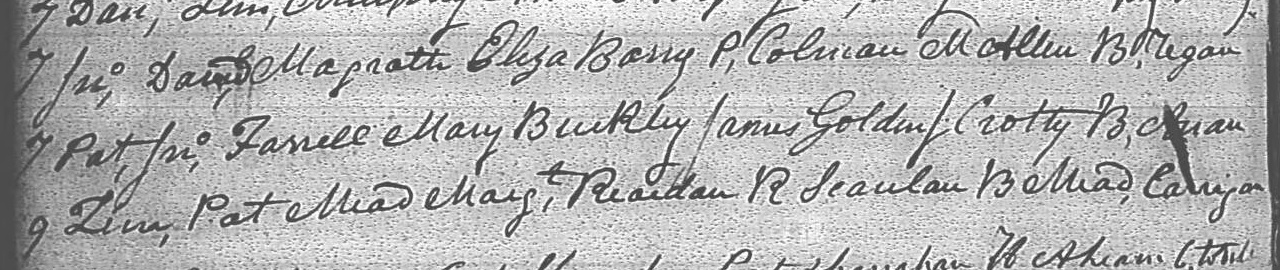 7 Dan, Tim,
7 Jno, David Magrath Eliza Barry P, Colman M Allen B, Regan
7 Pat, Jno, Farrell Mary Buckley James Golding J Crotty B,
9 Tim, Pat Mead Margt, Reardan R Scanlan B Mead, Carrigan
H Ahearn